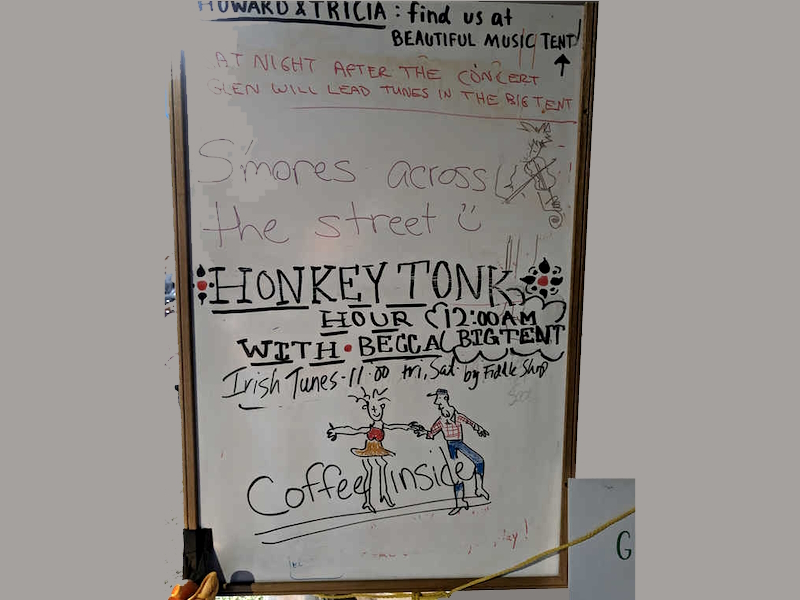 HOWARD & TRICIA : find us at
BEAUTIFUL MUSIC TENT!
AT NIGHT AFTER THE CONCERT
GLEN WILL LEAD TUNES IN THE BIG TENT
S'mores across
the street
HONKEY TONK
HOUR 12:00AM
WITH • BECCA BIG TENT
Irish Tunes - 11:00 fri, Sat. by Fiddle Shop
Coffee inside
G